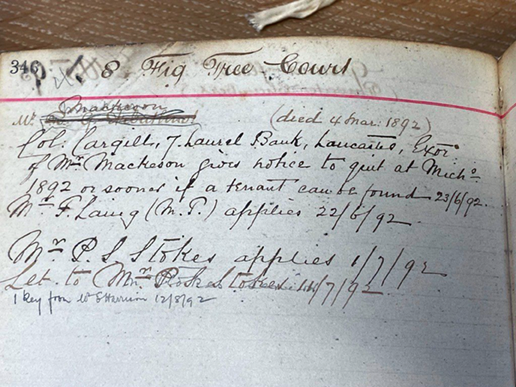 346
8 Fig Tree Court
Mackeson
Mr (died 4 Mar: 1892)
Col: Cargill, 7 Laurel Bank, Lancaster, Exor
of Mr Mackeson gives notice to quit at Michs
1892 or sooner if a tenant can be found 23/6/92
Mr F. Laing (M.T.) applies 22/6/92
Mr P. S. Stokes applies 1/7/92
Let to Mr P. S. Stokes 14/7/92
1 key from Mr Harrison 12/8/92